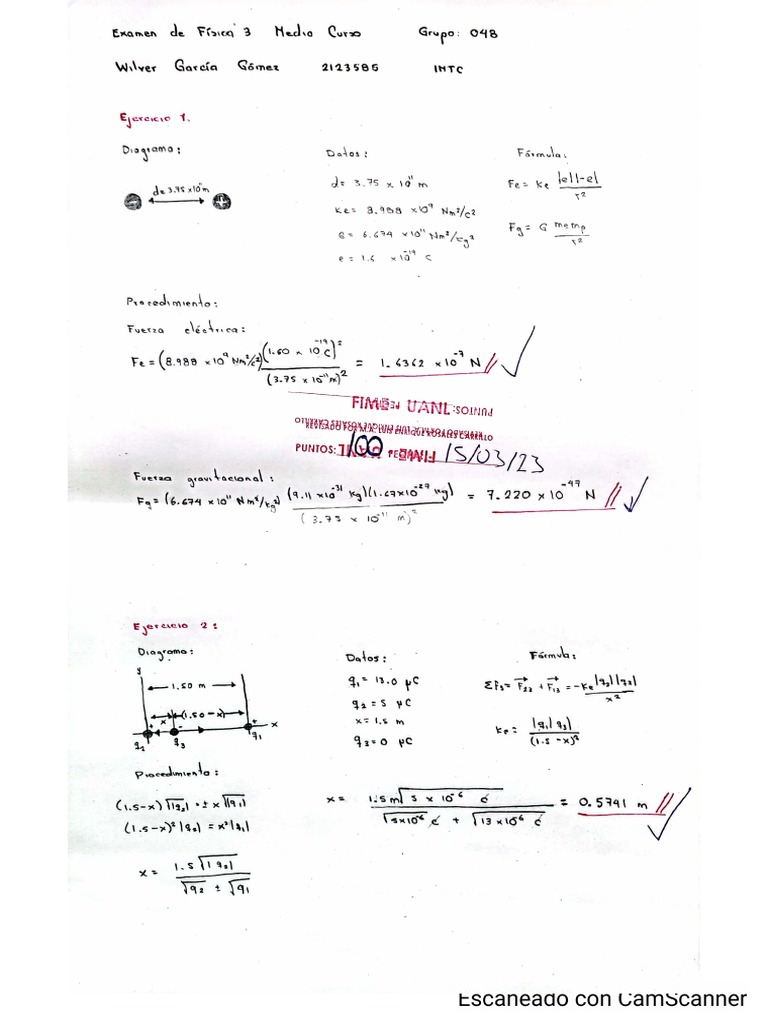 Examen de Física 3 Medio Curso Grupo: 048
Wilver García Gómez 2123585 INTC
Ejercicio 1.
Diagrama: Datos: Fórmula:
d= 3.75 x10¹¹m
d= 3.75 x 10¹¹ m
Fe = Ke |e||-e| / r²
Ke= 8.988 x10⁹ Nm²/c²
G = 6.674 x10¹¹ Nm²/kg²
Fg = G me mp / r²
e = 1.6 x10⁻¹⁹ C
Procedimiento:
Fuerza eléctrica:
Fe = (8.988 x10⁹ Nm²/c²) (1.60 x 10⁻¹⁹ C)² / (3.75 x 10⁻¹¹ m)² = 1.6362 x10⁻⁷ N
FIME UANL PUNTOS:
REVISADO POR M.A. LUIS ENRIQUE ROSALES CARRILLO
PUNTOS: 100 15/03/23
Fuerza gravitacional:
Fg = (6.674 x10¹¹ Nm²/kg²) (9.11 x10⁻³¹ kg)(1.67x10⁻²⁷ kg) / (3.75 x 10⁻¹¹ m)² = 7.220 x 10⁻⁴⁷ N
Ejercicio 2:
Diagrama: Datos: Fórmula:
y
1.50 m
x (1.50 - x)
+ - + x
q2 q3 q1
q1 = 13.0 μC
q2 = 5 μC
x = 1.5 m
q3 = 0 μC
ΣF3 = F23 + F13 = -Ke |q2||q3| / x²
Ke = |q1||q3| / (1.5 - x)²
Procedimiento:
(1.5-x) √|q2| = ± x √|q1|
(1.5-x)² |q2| = x² |q1|
x = 1.5 √|q2| / √q2 ± √q1
x = 1.5m √5 x 10⁻⁶ c / √5x10⁻⁶ c + √13 x10⁻⁶ c = 0.5741 m
Escaneado con CamScanner